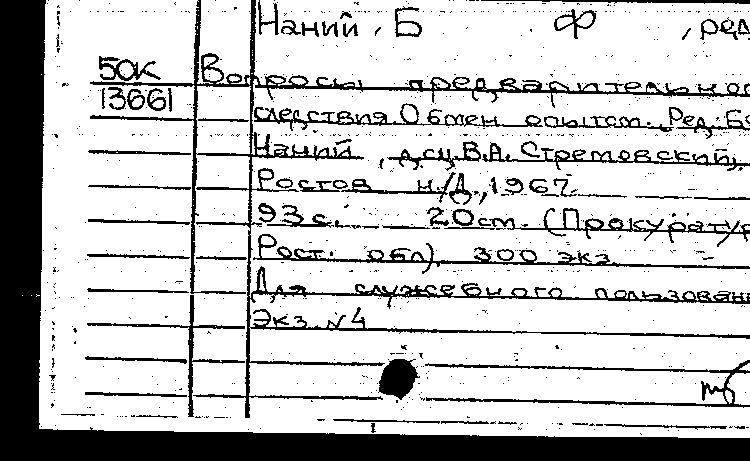 Наний, Б Ф , ред
50К Вопросы предварительног
13661 следствия. Обмен опытом. Ред: Б
Наний, А.сц. В.А. Стремовский,
Ростов н/Д., 1967.
93 с. 20 cm. (Прокуратур
Рост. обл). 300 экз.
Для служебного пользован
Экз. N 4